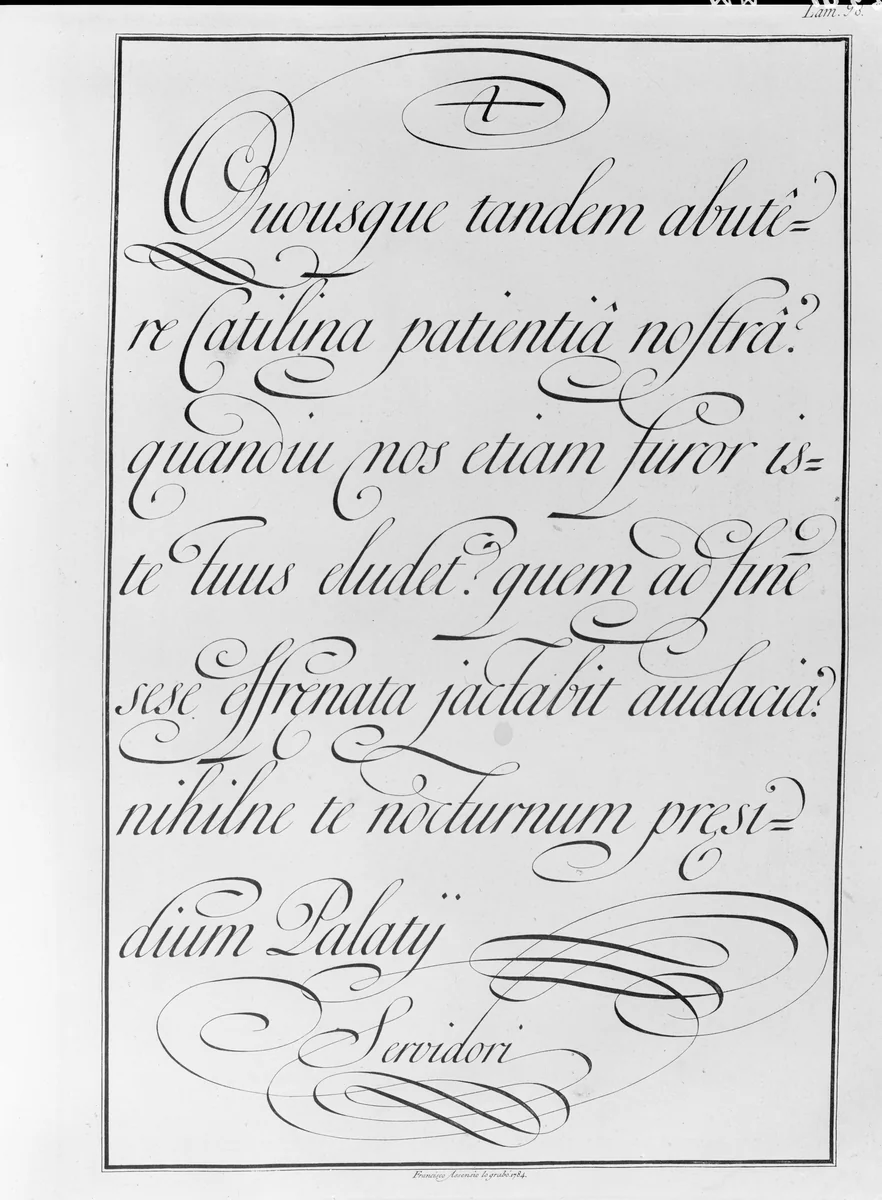 Lam. 98.
Quousque tandem abutê=
re Catilina patientiâ nostrâ?
quandiu nos etiam furor is=
te tuus eludet? quem ad finē
sese effręnata jactabit audacia?
nihilne te nocturnum pręsi=
dium Palatÿ
Servidori
Francisco Assensio lo grabó 1784.